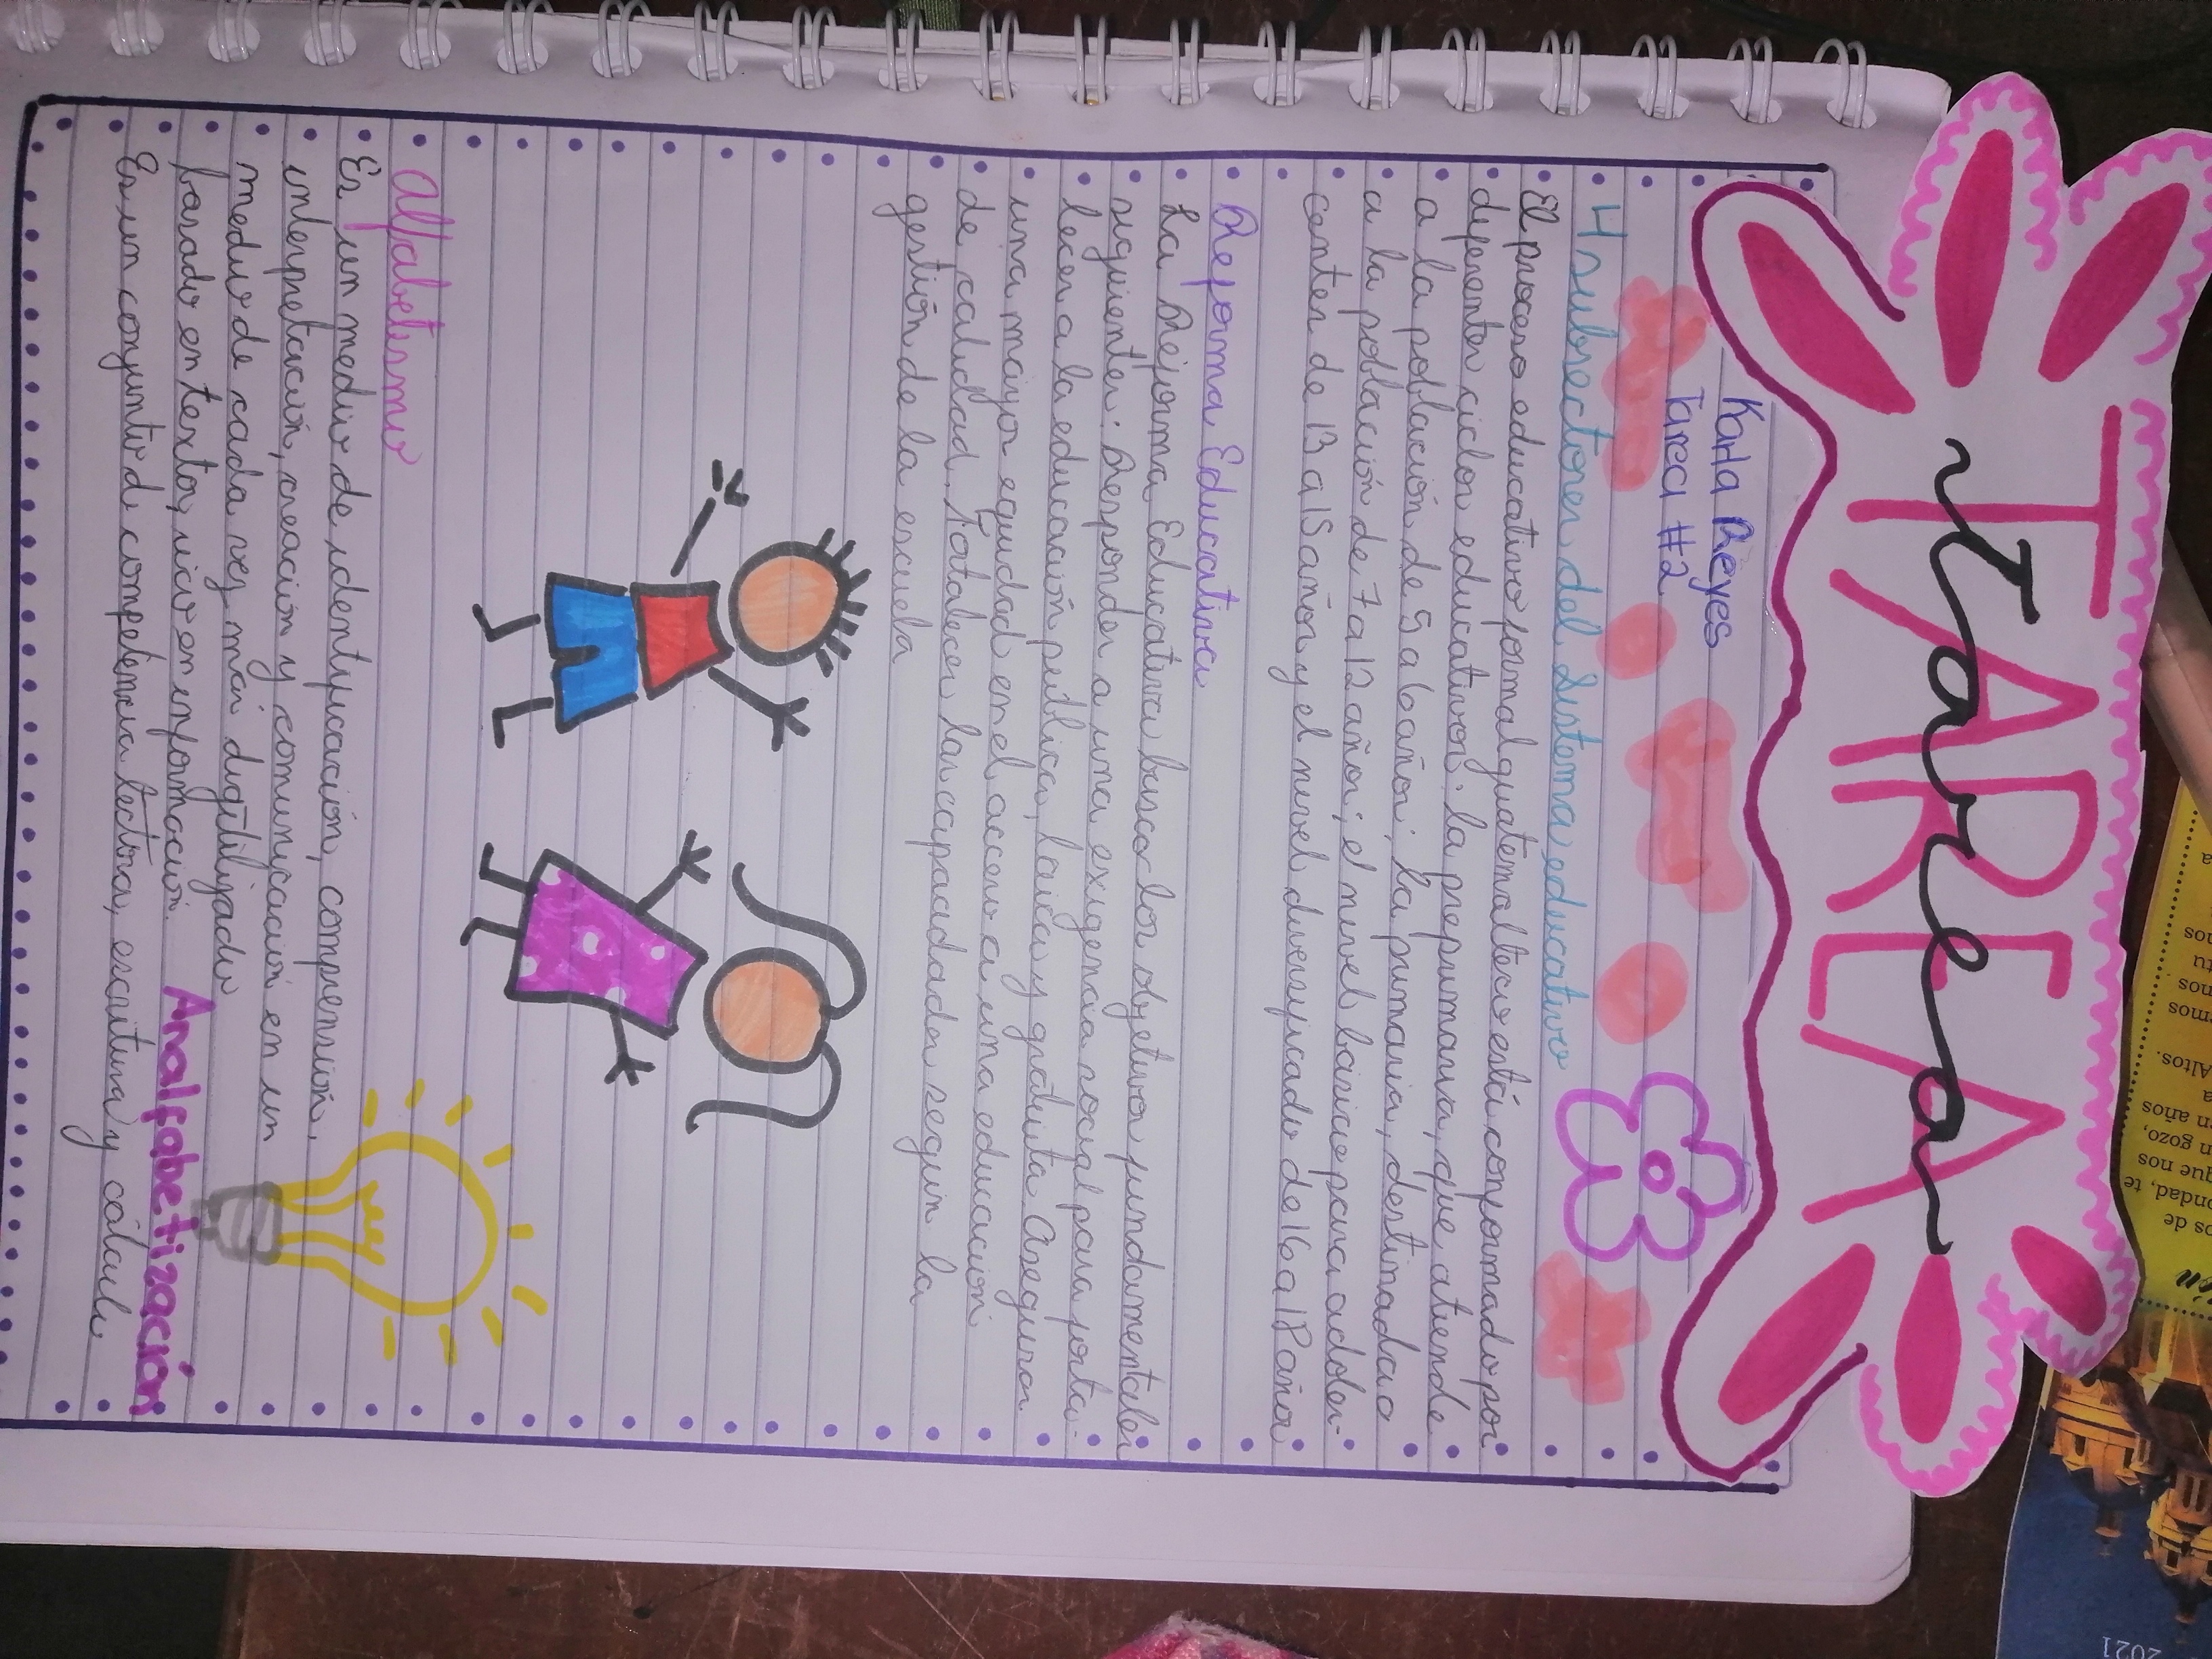 TAREA
tarea
Karla Reyes
Tarea #2
4 subsectores del Sistema educativo
El proceso educativo formal guatemalteco está conformado por
diferentes ciclos educativos: la preprimaria, que atiende
a la población de 5 a 6 años; la primaria, destinada
a la población de 7 a 12 años; el nivel básico para adoles-
centes de 13 a 15 años y el nivel diversificado de 16 a 18 años
Reforma Educativa
La Reforma Educativa busca los objetivos fundamentales
siguientes: Responder a una exigencia social para forta-
lecer a la educación pública, laica y gratuita Asegurar
una mayor equidad en el acceso a una educación
de calidad. Fotalecer las capacidades segun la
gestión de la escuela
alfabetismo
Es un medio de identificación, comprensión,
interpretación, creación y comunicación en un
medio de cada vez más digitilizado
basado en textos, rico en información.
Analfabetización
Es un conjunto d competencia lectora, escritura y cálculo
2021